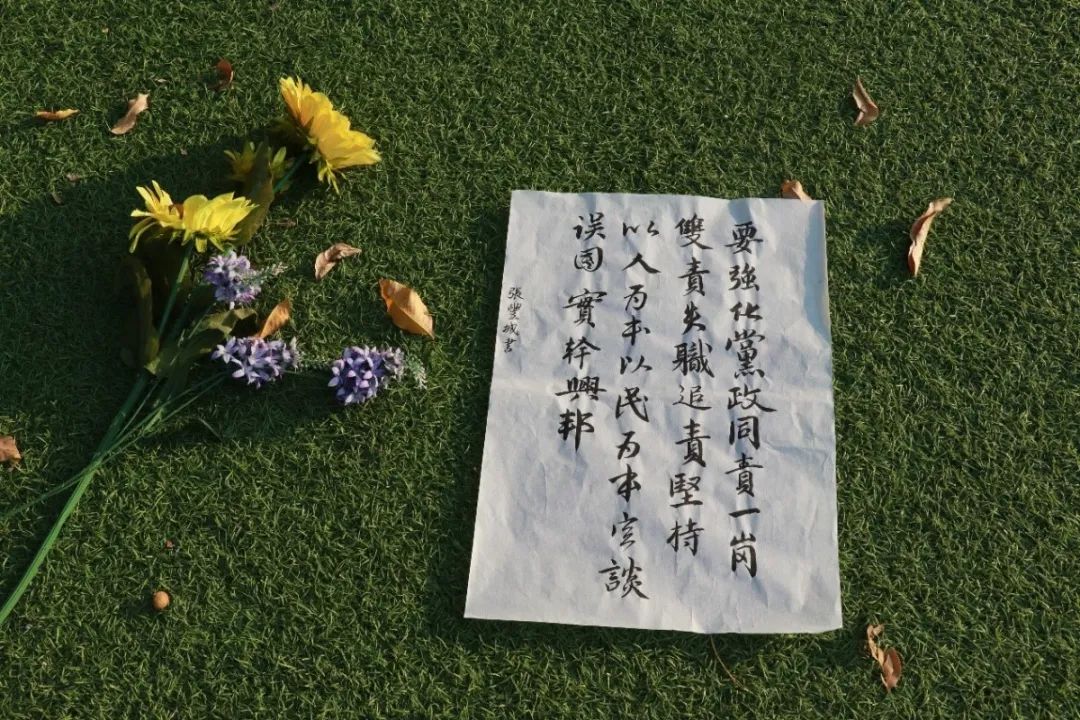 要強化黨政同責一崗
雙責失職追責堅持
以人为本以民为本空談
误國實幹興邦
張豐城書